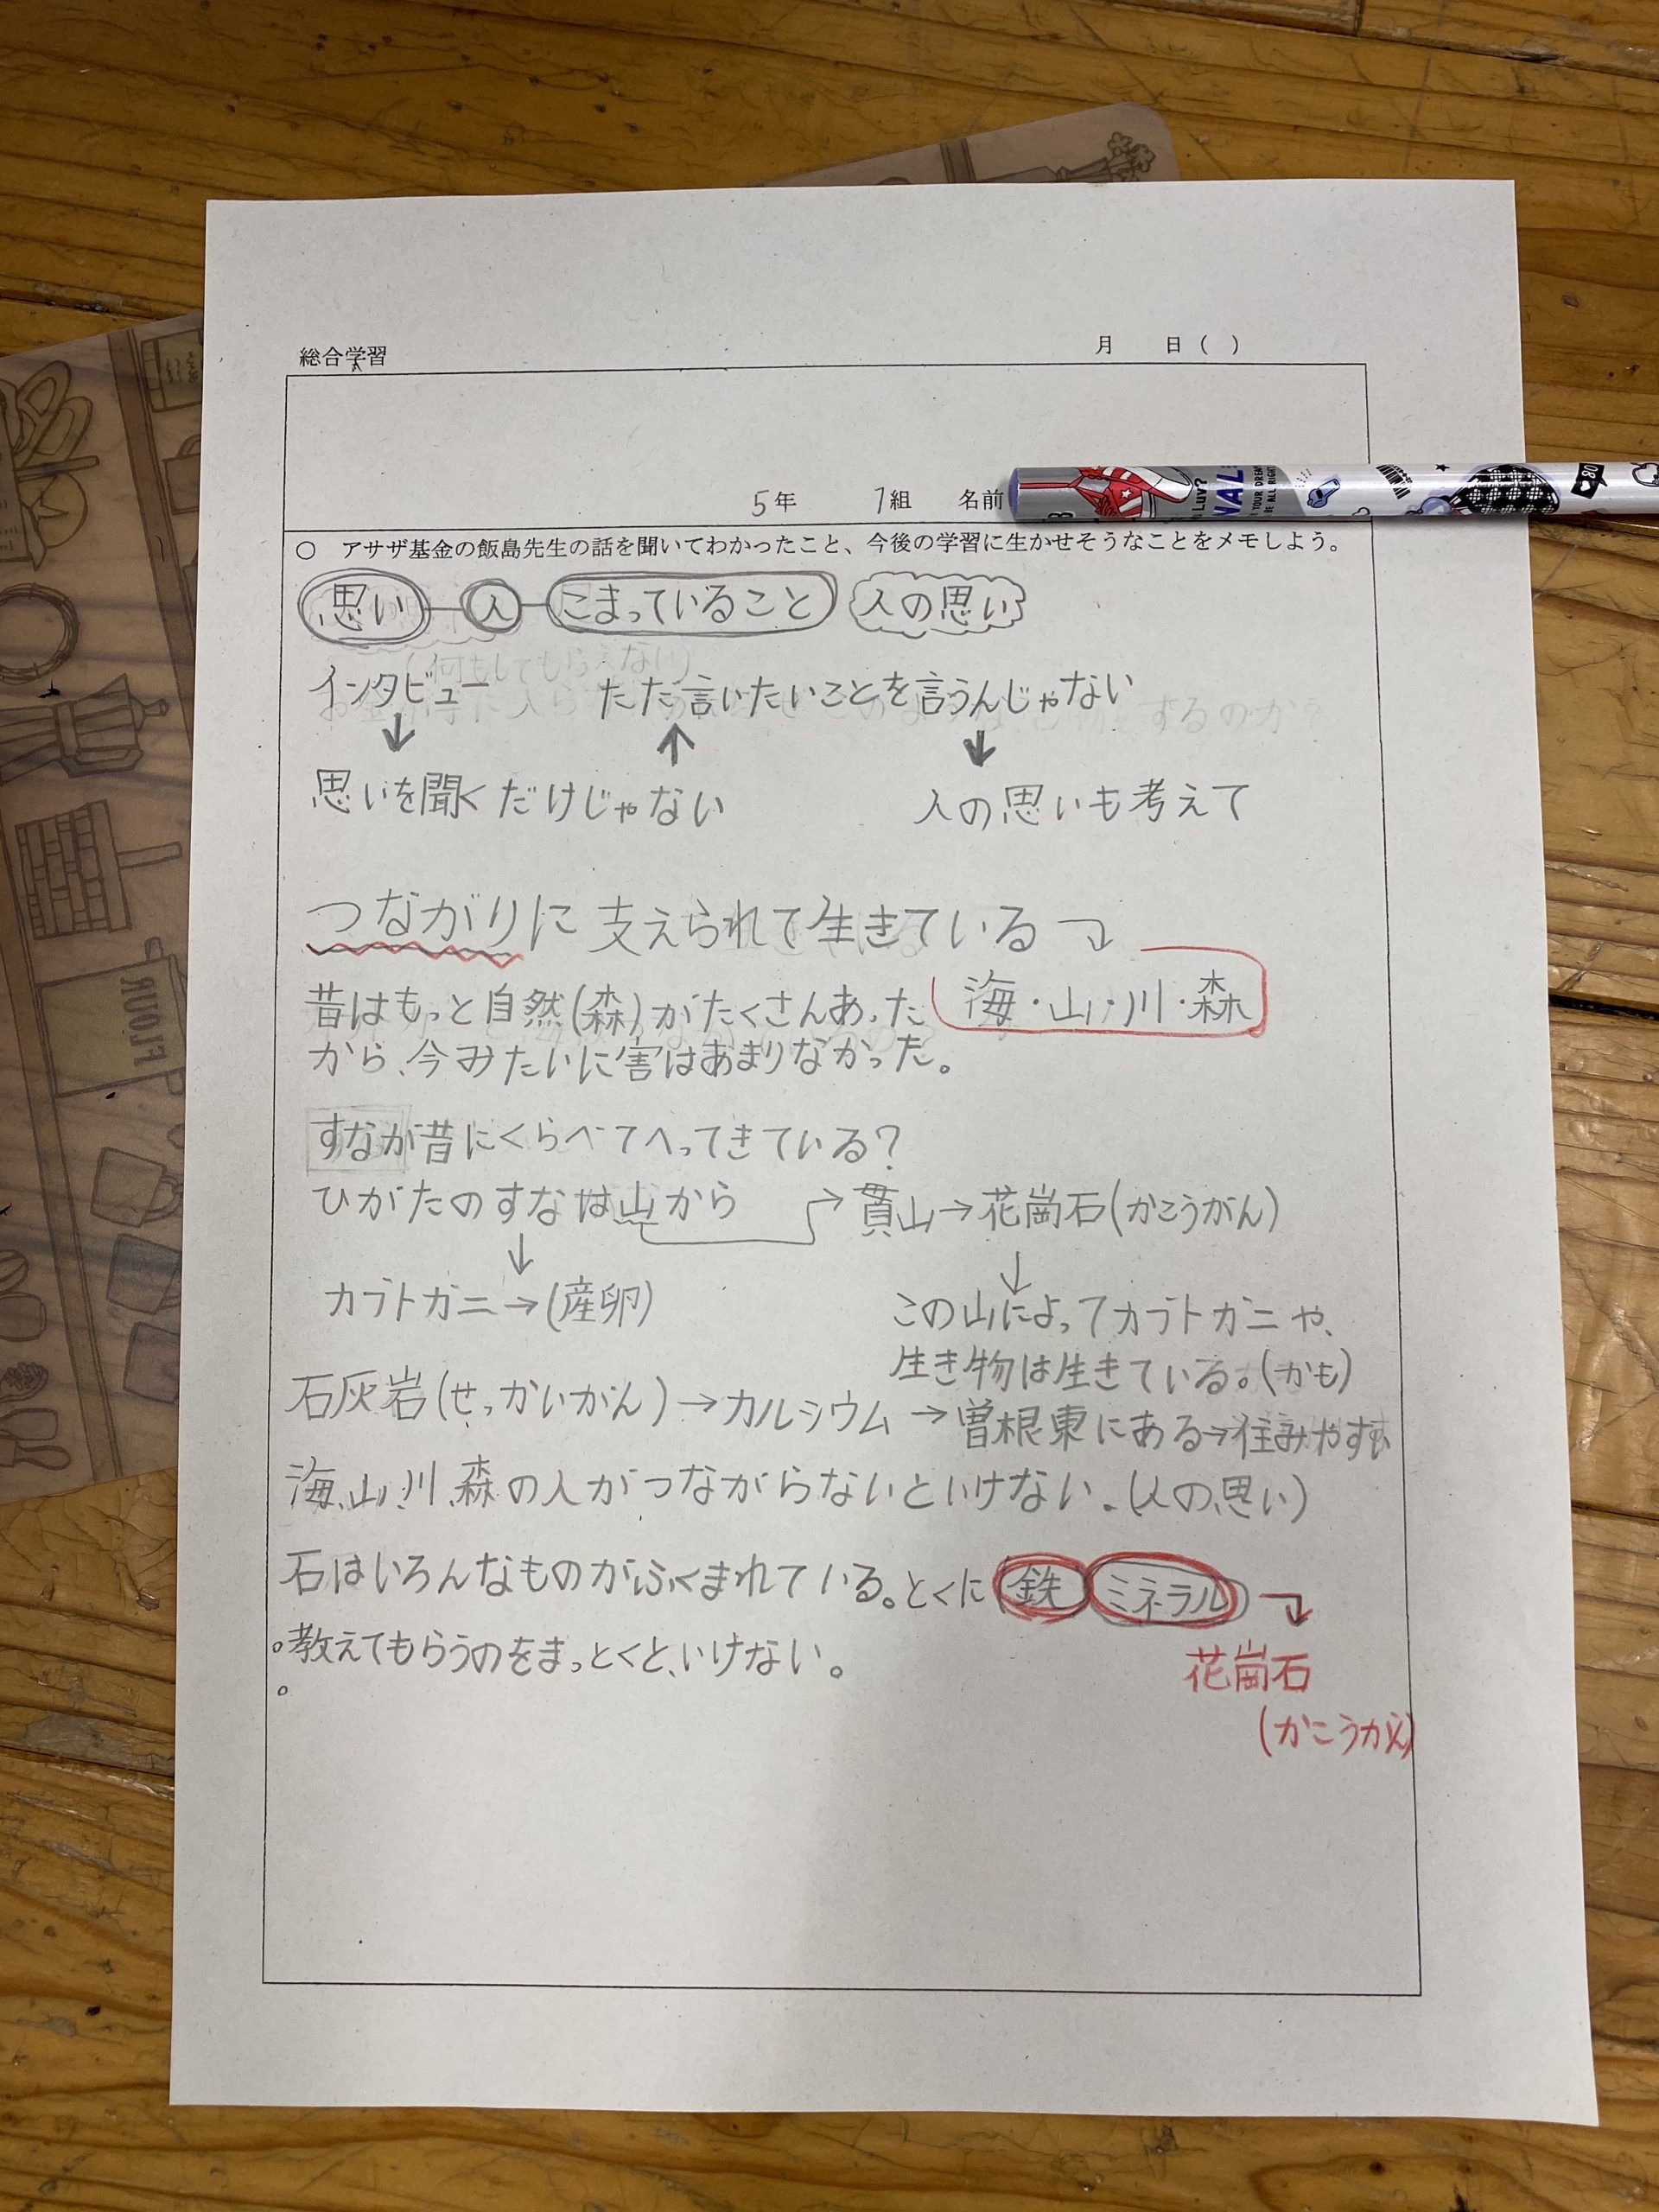 総合学習
月 日（ ）
5年 1組 名前
○ アサザ基金の飯島先生の話を聞いてわかったこと、今後の学習に生かせそうなことをメモしよう。
思い 人 こまっていること 人の思い
(何もしてもらえない)
インタビュー ただ言いたいことを言うんじゃない
するのか?
↓ ↑ ↓
思いを聞くだけじゃない 人の思いも考えて
つながりに支えられて生きている
昔はもっと自然(森)がたくさんあった 海・山・川・森
から、今みたいに害はあまりなかった。
すなが昔にくらべてへってきている?
ひがたのすなは山から → 貫山→花崗石(かこうがん)
↓ ↓
カブトガニ→(産卵) この山によってカブトガニや、
生き物は生きている。(かも)
石灰岩(せっかいがん)→カルシウム→曽根東にある→住みやすい
海、山、川、森の人がつながらないといけない。(人の思い)
石はいろんなものがふくまれている。とくに 鉄 ミネラル
花崗石
。教えてもらうのをまっとくと、いけない。
。
(かこうがん)
FLOUR